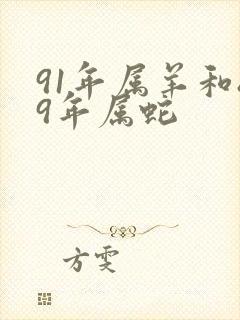 91年属羊和
9年属蛇
方雯